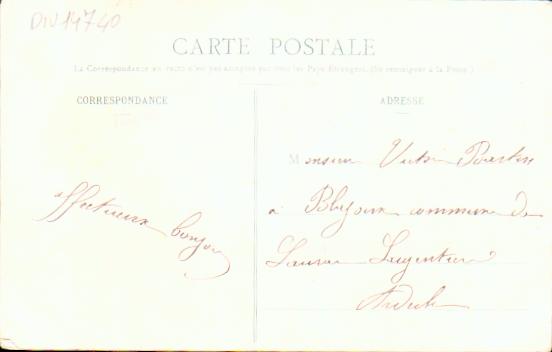 DIV 14740
CARTE POSTALE
La Correspondance au recto n'est pas acceptée par tous les Pays Etrangers. (Se renseigner à la Poste.)
CORRESPONDANCE
ADRESSE
affectueux bonjour
Monsieur Victor
à commune de
Ardèche